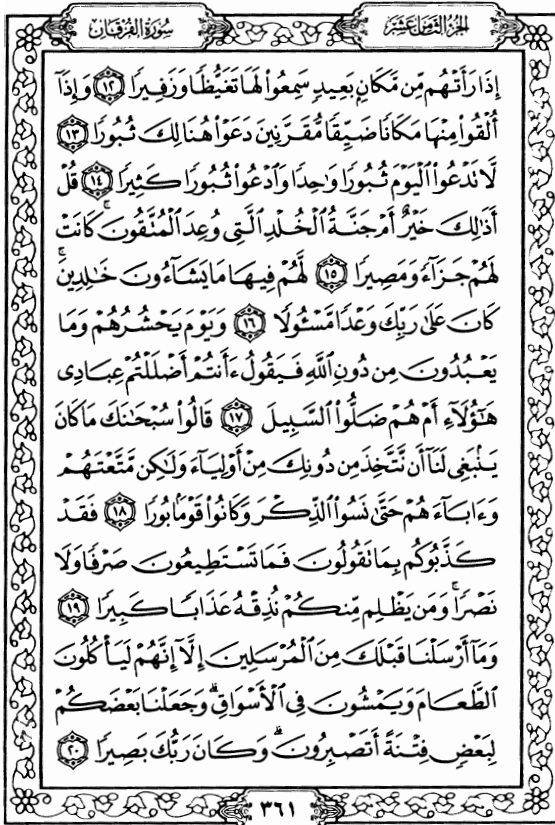 سُورَةُ الفُرْقَانِ
الجُزْءُ الثَّامِنَ عَشَرَ
إِذَا رَأَتْهُم مِّن مَّكَانٍۭ بَعِيدٍ سَمِعُوا۟ لَهَا تَغَيُّظًا وَزَفِيرًا ١٢ وَإِذَآ
أُلْقُوا۟ مِنْهَا مَكَانًا ضَيِّقًا مُّقَرَّنِينَ دَعَوْا۟ هُنَالِكَ ثُبُورًا ١٣
لَّا تَدْعُوا۟ ٱلْيَوْمَ ثُبُورًا وَٰحِدًا وَٱدْعُوا۟ ثُبُورًا كَثِيرًا ١٤ قُلْ
أَذَٰلِكَ خَيْرٌ أَمْ جَنَّةُ ٱلْخُلْدِ ٱلَّتِى وُعِدَ ٱلْمُتَّقُونَ ۚ كَانَتْ
لَهُمْ جَزَآءً وَمَصِيرًا ١٥ لَّهُمْ فِيهَا مَا يَشَآءُونَ خَٰلِدِينَ ۚ
كَانَ عَلَىٰ رَبِّكَ وَعْدًا مَّسْـُٔولًا ١٦ وَيَوْمَ يَحْشُرُهُمْ وَمَا
يَعْبُدُونَ مِن دُونِ ٱللَّهِ فَيَقُولُ ءَأَنتُمْ أَضْلَلْتُمْ عِبَادِى
هَٰٓؤُلَآءِ أَمْ هُمْ ضَلُّوا۟ ٱلسَّبِيلَ ١٧ قَالُوا۟ سُبْحَٰنَكَ مَا كَانَ
يَنۢبَغِى لَنَآ أَن نَّتَّخِذَ مِن دُونِكَ مِنْ أَوْلِيَآءَ وَلَٰكِن مَّتَّعْتَهُمْ
وَءَابَآءَهُمْ حَتَّىٰ نَسُوا۟ ٱلذِّكْرَ وَكَانُوا۟ قَوْمًۢا بُورًا ١٨ فَقَدْ
كَذَّبُوكُم بِمَا تَقُولُونَ فَمَا تَسْتَطِيعُونَ صَرْفًا وَلَا
نَصْرًا ۚ وَمَن يَظْلِم مِّنكُمْ نُذِقْهُ عَذَابًا كَبِيرًا ١٩
وَمَآ أَرْسَلْنَا قَبْلَكَ مِنَ ٱلْمُرْسَلِينَ إِلَّآ إِنَّهُمْ لَيَأْكُلُونَ
ٱلطَّعَامَ وَيَمْشُونَ فِى ٱلْأَسْوَاقِ ۗ وَجَعَلْنَا بَعْضَكُمْ
لِبَعْضٍ فِتْنَةً أَتَصْبِرُونَ ۗ وَكَانَ رَبُّكَ بَصِيرًا ٢٠
٣٦١